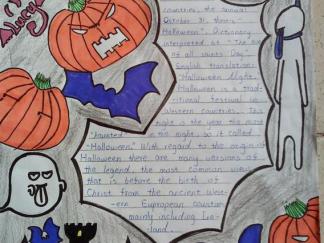 Lucy
countries, the annual
October 31, there is
"Halloween". Dictionary
interpreted as "The
of all saints' Day".
English translation:
"Halloween Night.
Halloween is a trad-
itional festival in
Western countries. This
night is the year the most
"haunted" in the night, so it called
"Halloween." With regard to the origin of
Halloween there are many versions of
the legend, the most common view
that is before the birth of
Christ from the ancient West-
ern European countries
mainly including Ire-
land.